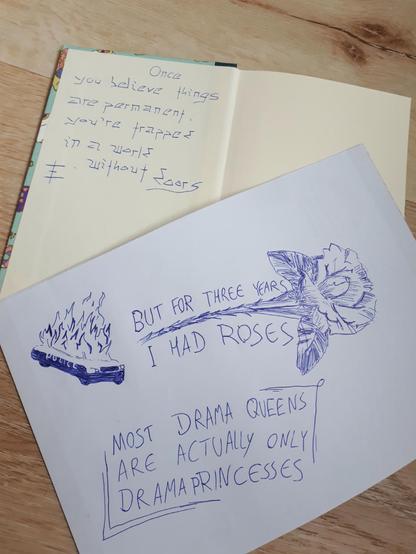 Once
you believe things
are permanent,
you're trapped
in a world
without doors
BUT FOR THREE YEARS
I HAD ROSES
MOST DRAMA QUEENS
ARE ACTUALLY ONLY
DRAMAPRINCESSES